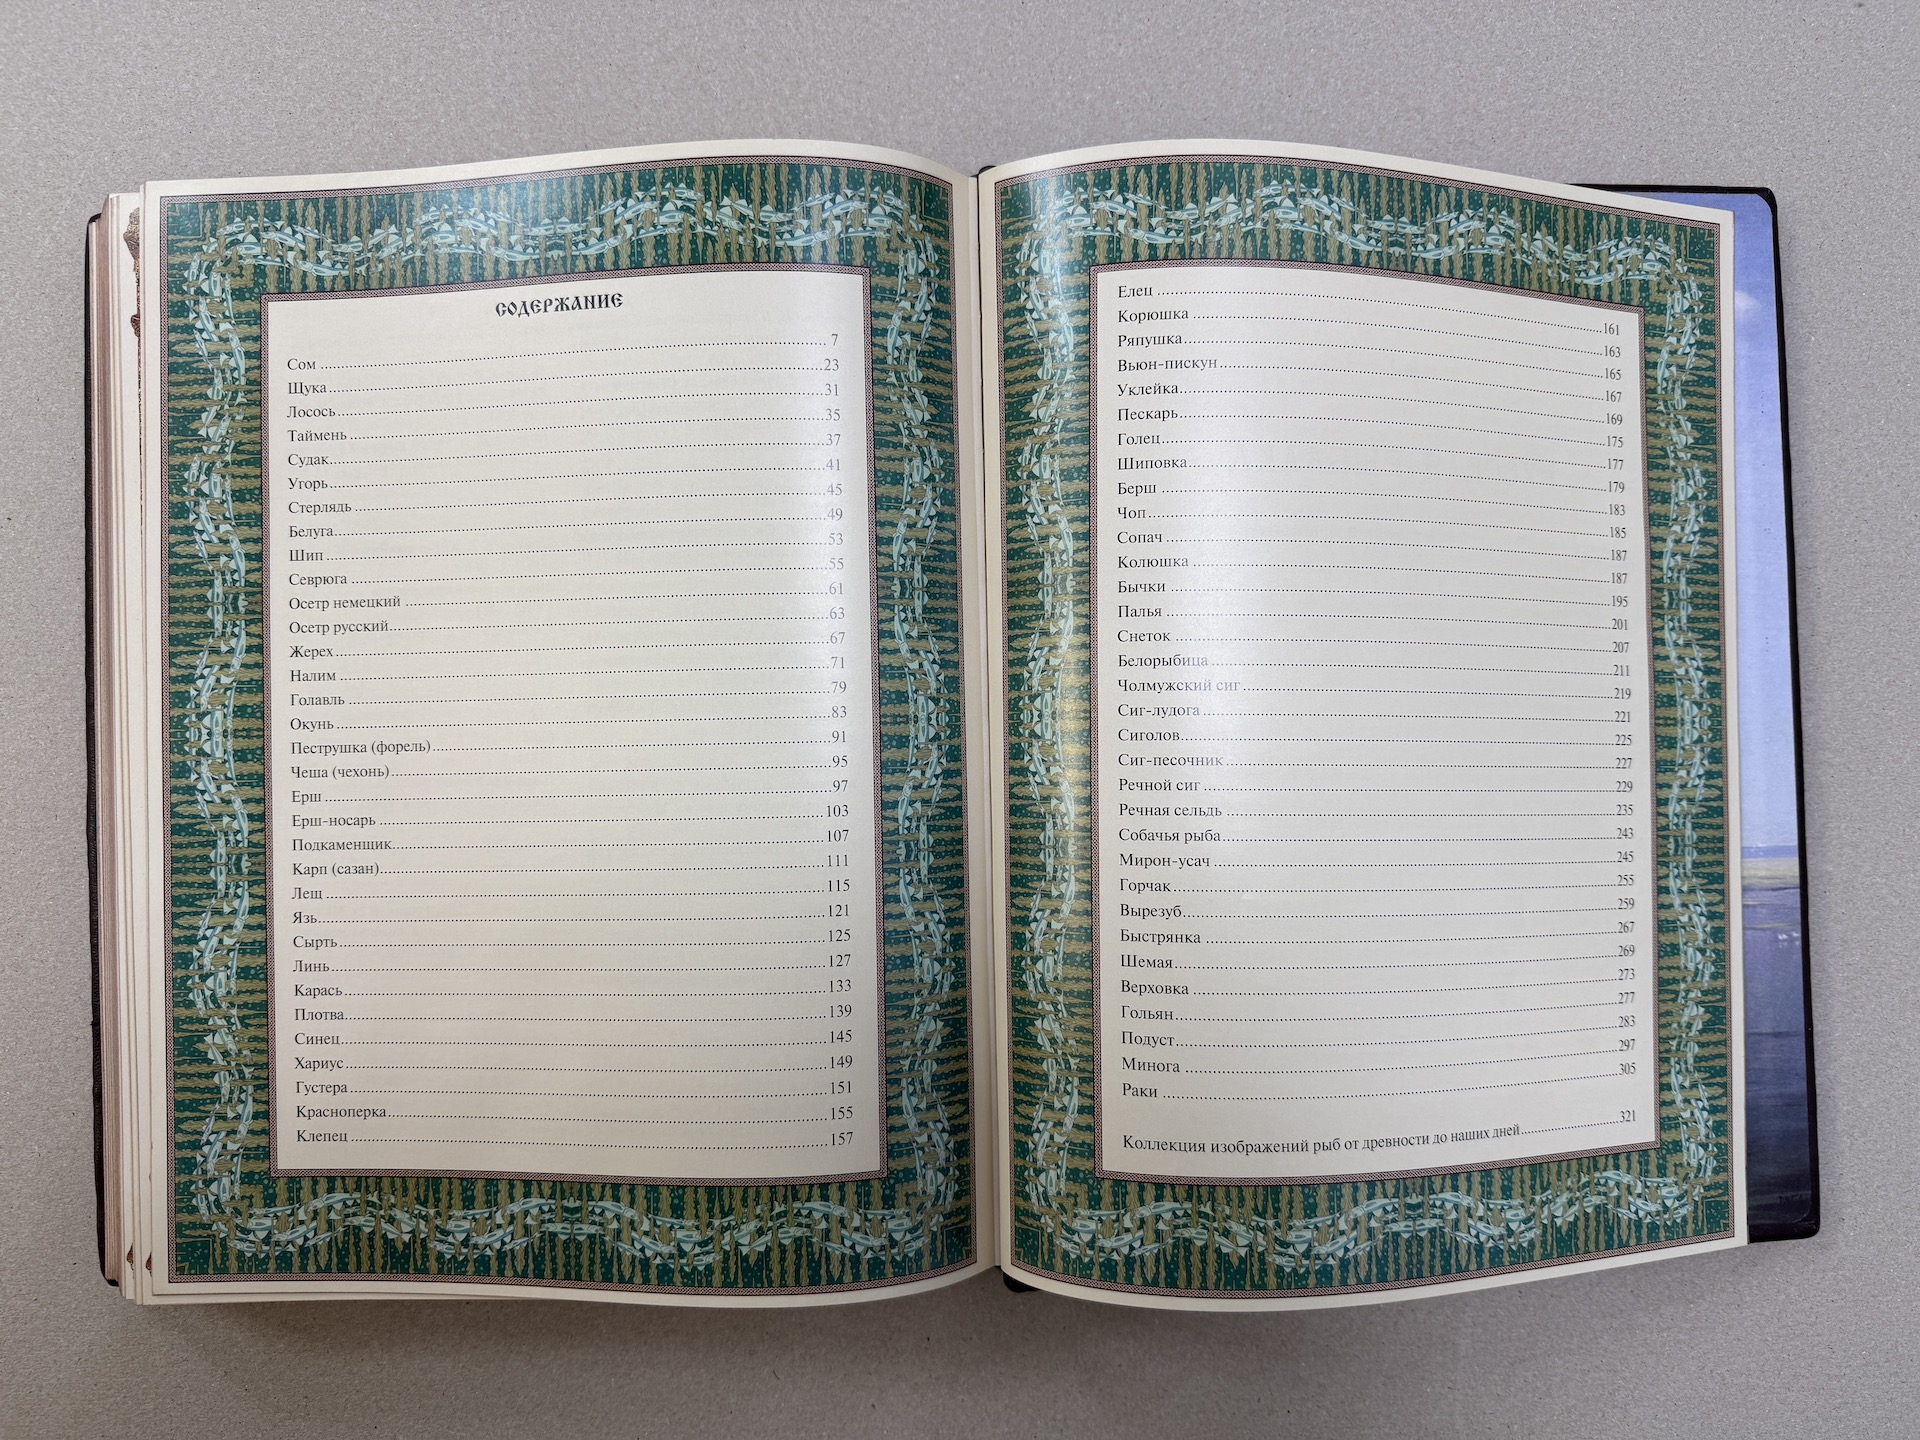 СОДЕРЖАНИЕ
Сом ........ 7
Щука ........ 23
Лосось ........ 31
Таймень ........ 35
Судак ........ 37
Угорь ........ 41
Стерлядь ........ 45
Белуга ........ 49
Шип ........ 53
Севрюга ........ 55
Осетр немецкий ........ 61
Осетр русский ........ 63
Жерех ........ 67
Налим ........ 71
Голавль ........ 79
Окунь ........ 83
Пеструшка (форель) ........ 91
Чеша (чехонь) ........ 95
Ерш ........ 97
Ерш-носарь ........ 103
Подкаменщик ........ 107
Карп (сазан) ........ 111
Лещ ........ 115
Язь ........ 121
Сырть ........ 125
Линь ........ 127
Карась ........ 133
Плотва ........ 139
Синец ........ 145
Хариус ........ 149
Густера ........ 151
Красноперка ........ 155
Клепец ........ 157
Елец ........ 161
Корюшка ........ 163
Ряпушка ........ 165
Вьюн-пискун ........ 167
Уклейка ........ 169
Пескарь ........ 175
Голец ........ 177
Шиповка ........ 179
Берш ........ 183
Чоп ........ 185
Сопач ........ 187
Колюшка ........ 187
Бычки ........ 195
Палья ........ 201
Снеток ........ 207
Белорыбица ........ 211
Чолмужский сиг ........ 219
Сиг-лудога ........ 221
Сиголов ........ 225
Сиг-песочник ........ 227
Речной сиг ........ 229
Речная сельдь ........ 235
Собачья рыба ........ 243
Мирон-усач ........ 245
Горчак ........ 255
Вырезуб ........ 259
Быстрянка ........ 267
Шемая ........ 269
Верховка ........ 273
Гольян ........ 277
Подуст ........ 283
Минога ........ 297
Раки ........ 305
Коллекция изображений рыб от древности до наших дней ........ 321